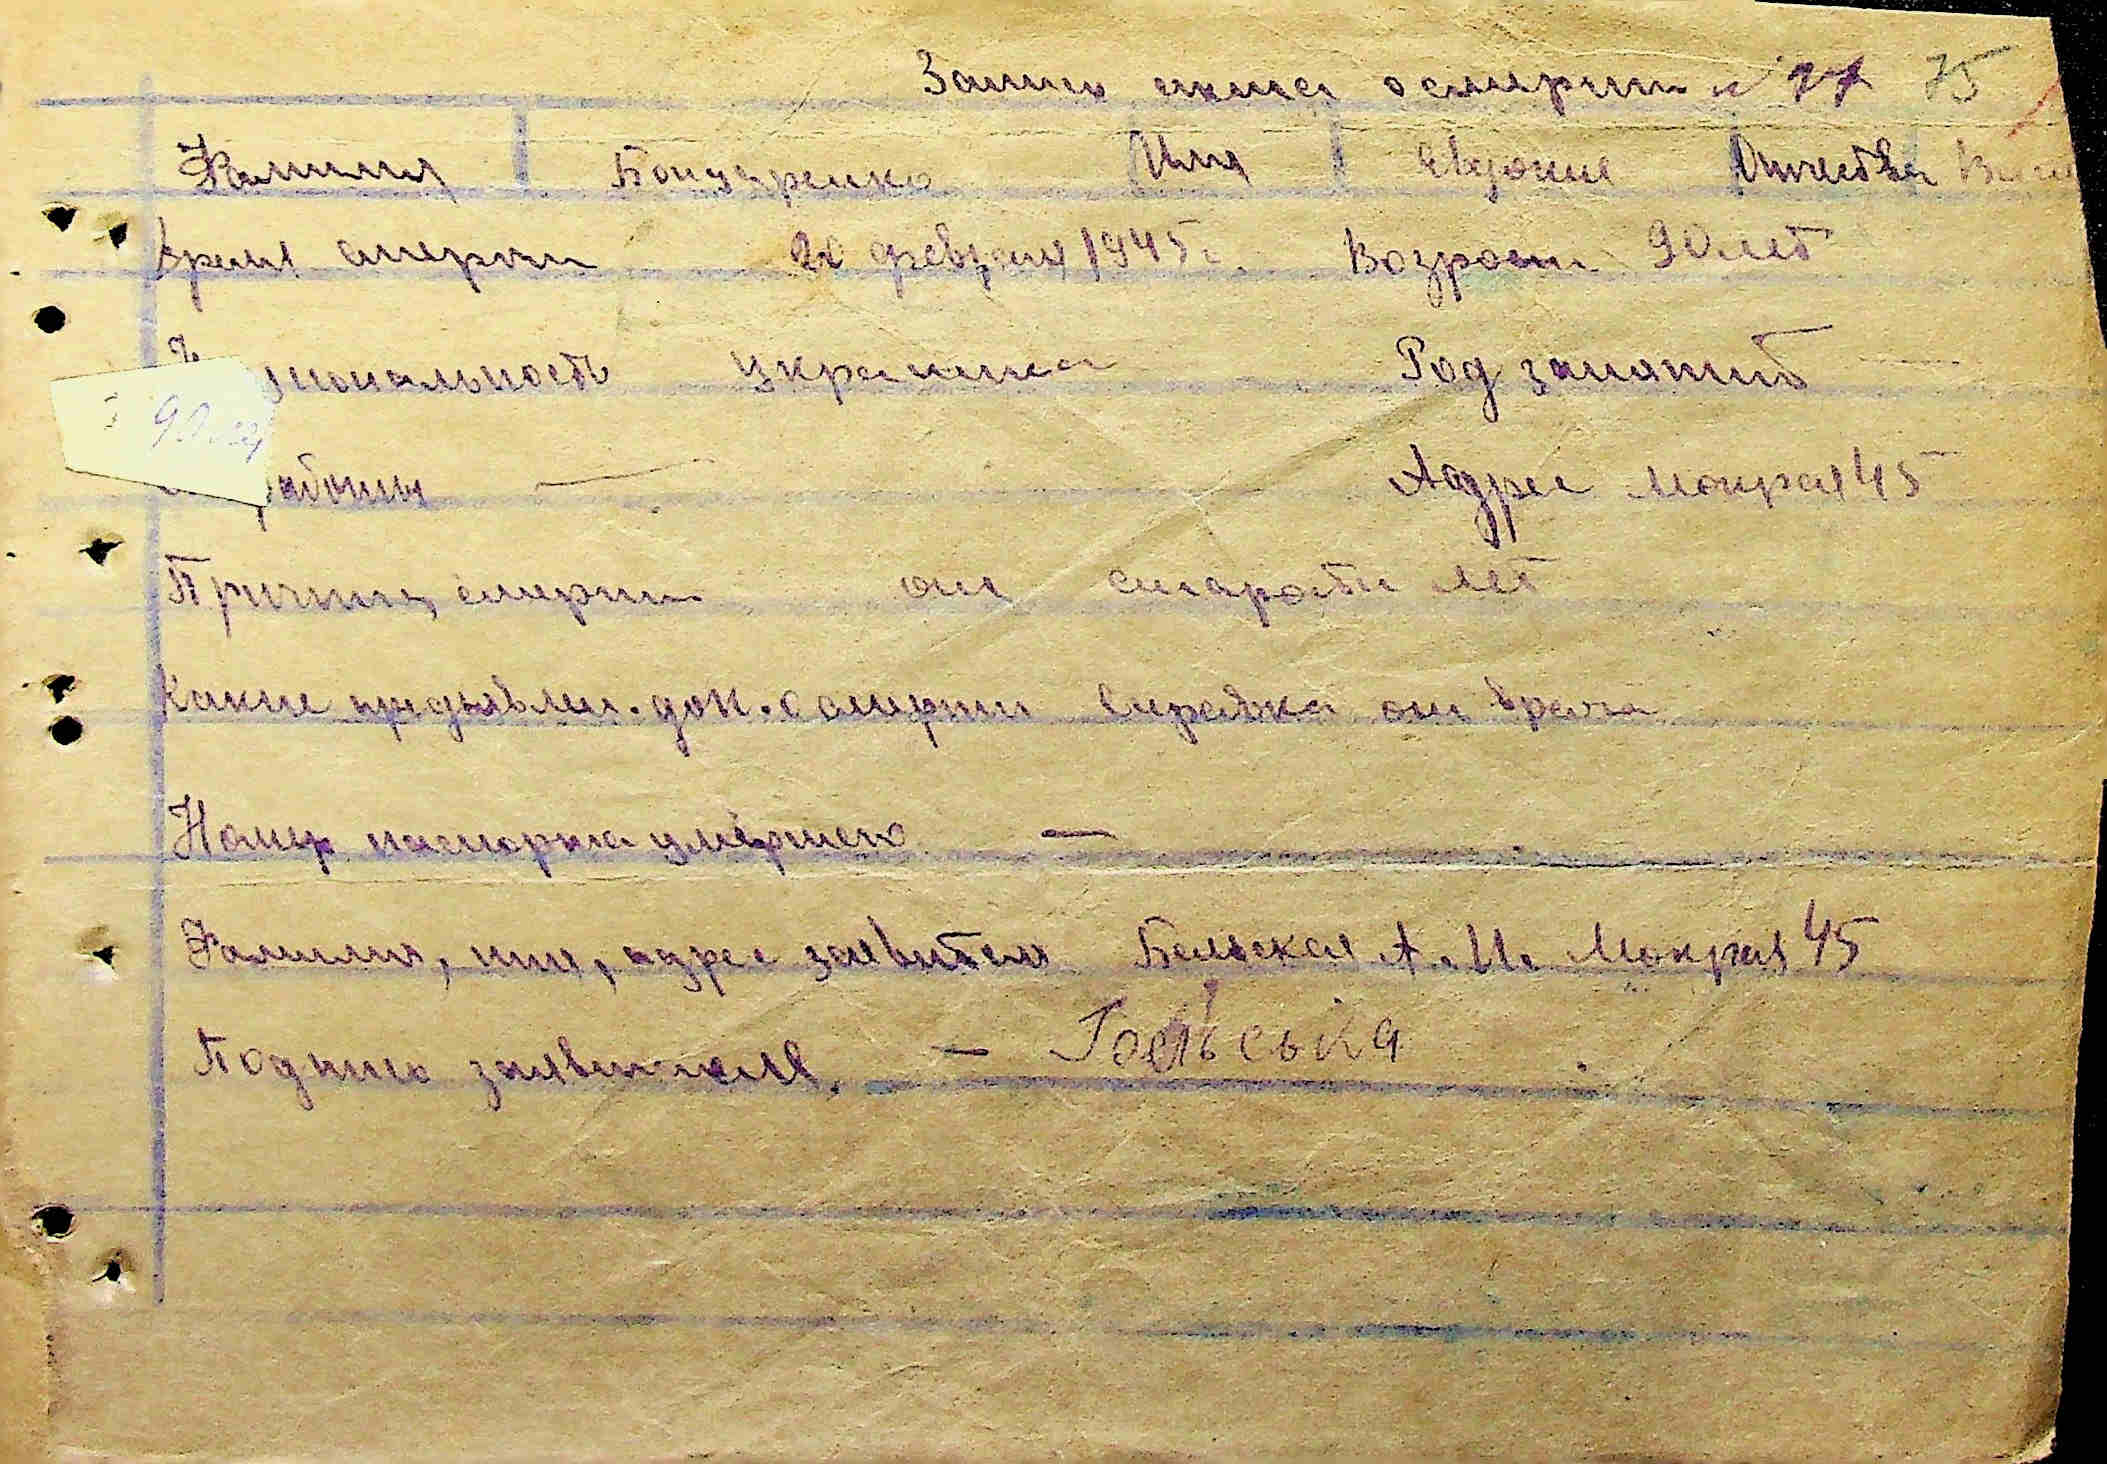 Запись акта о смерти № 77 75
Фамилия Бондаренко Имя Евдокие Отчество
время смерти 20 февраля 1945 г. Возраст 90 лет
украинка Род занятий —
90 лет
работы — Адрес Мокрая 45
Причина смерти от старости лет
Какие предъявлен. док. о смерти справка от врача
Номер паспорта умершего —
Фамилия, имя, адрес заявителя Бельская А. И. Мокрая 45
Подпись заявителя. —